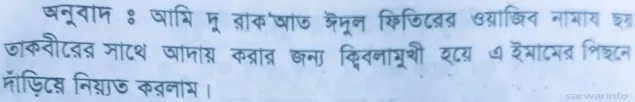 অনুবাদ ঃ আমি দু রাক'আত ঈদুল ফিতিরের ওয়াজিব নামায ছয়
তাকবীরের সাথে আদায় করার জন্য ক্বিবলামুখী হয়ে এ ইমামের পিছনে
দাঁড়িয়ে নিয়্যত করলাম।
sarwarinfo